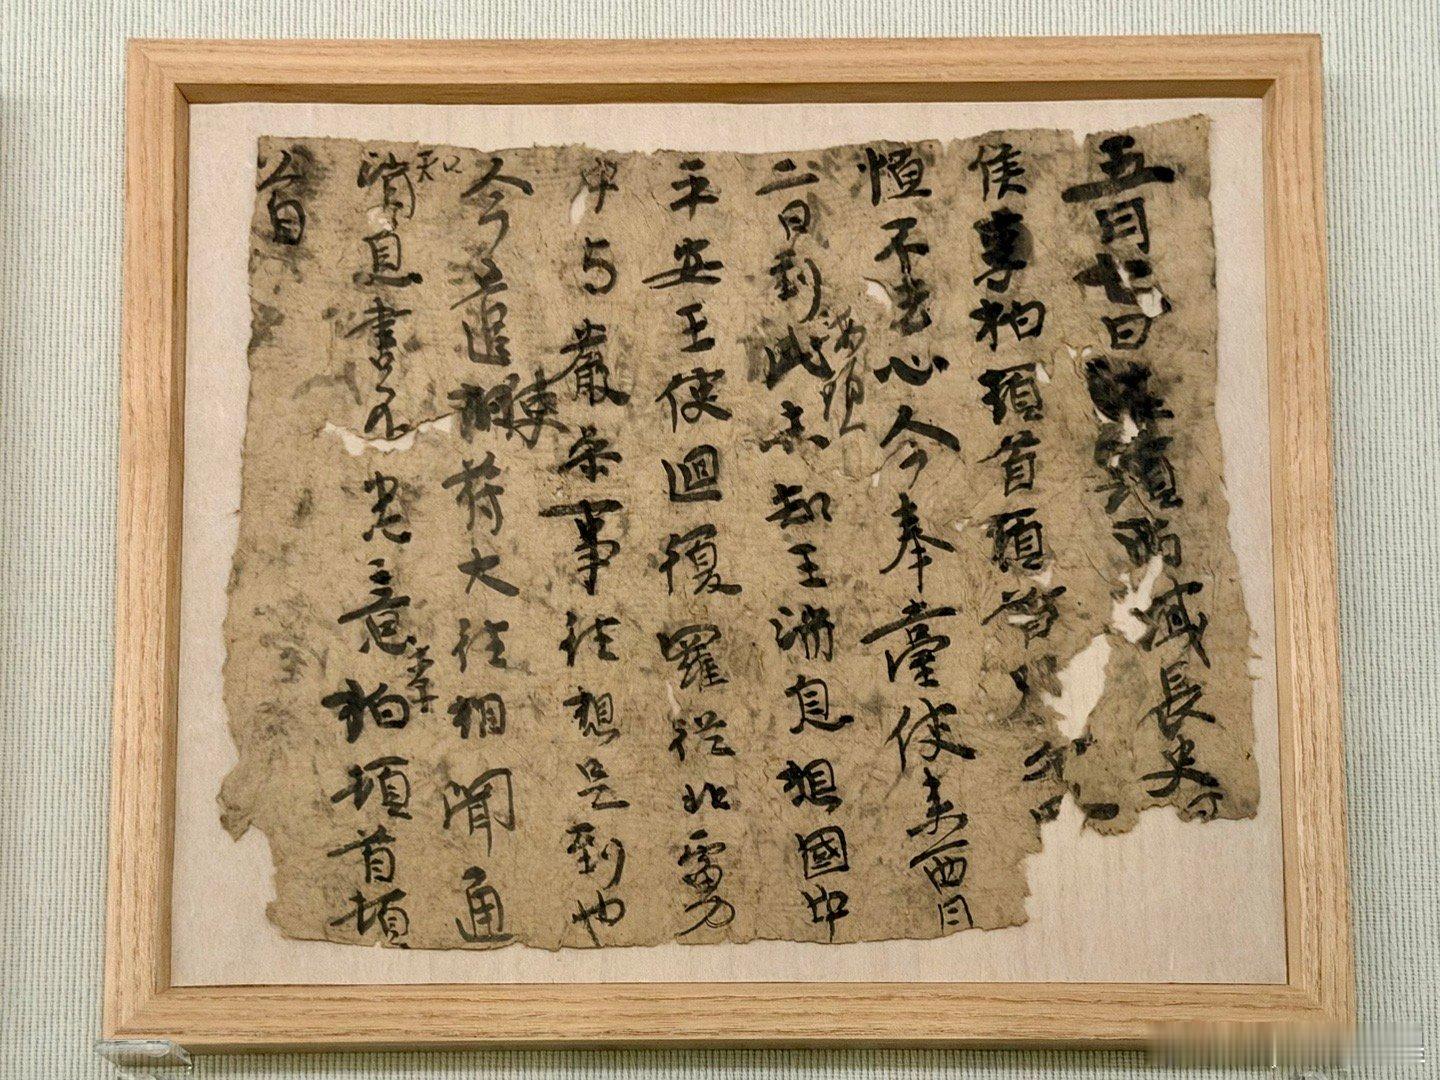 五月七日海頭西域長史
侯李柏頓首頓首
恒不去心今奉臺使來西月
海頭
二日到此未知王消息想國中
平安王使迴復羅從北虜
中与嚴參事往想是到也
使
今遣苻大往相聞通
知
消息書不悉意
李柏頓首頓
首